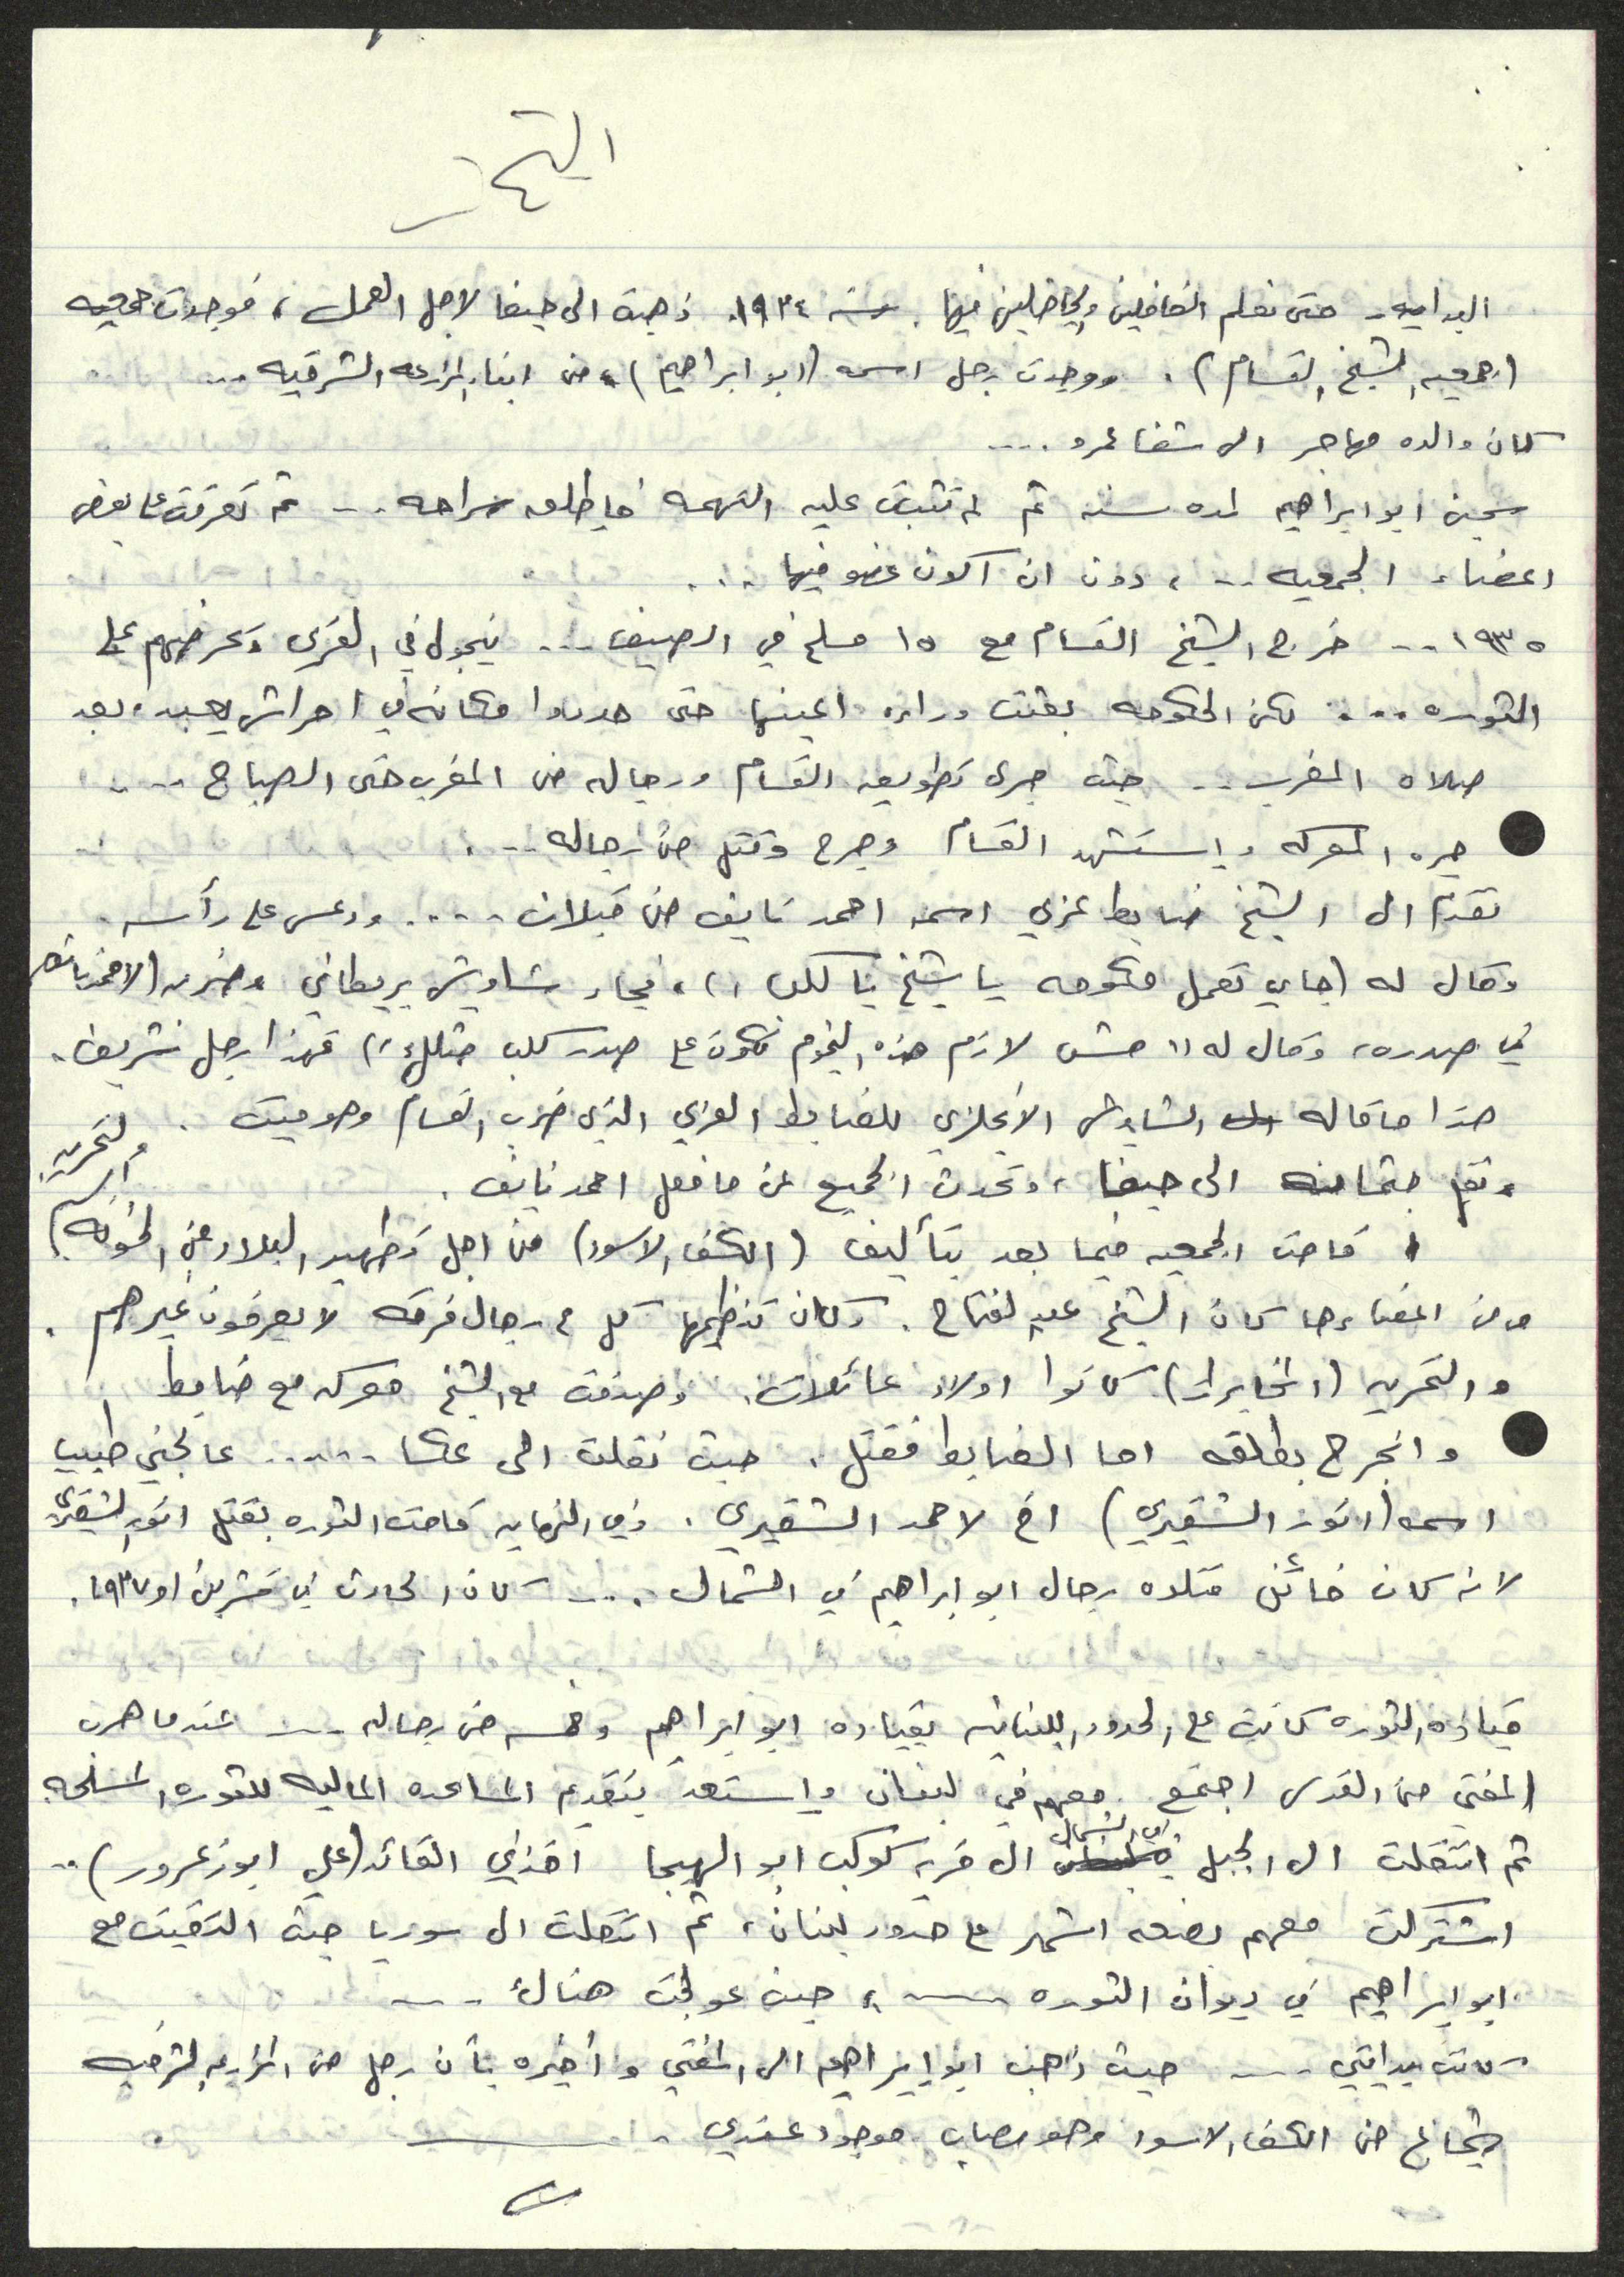 البدايه - حتى نعلم الغافلين والجاهلين فيها. سنة ١٩٣٤. ذهبت الى حيفا لاجل العمل، فوجدت جمعيه
(جمعيه الشيخ القسام). ووجدت رجل اسمه (ابو ابراهيم)، من ابناء المزرعه الشرقيه ...
كان والده مهاجر الى شفا عمرو ....
سجن ابو ابراهيم لمده سنه ثم لم تثبت عليه التهمه فاطلق سراحه ... ثم تعرفت على بعض
اعضاء الجمعيه ...، دون ان اكون عضو فيها ...
١٩٣٥ ... خرج الشيخ القسام مع ١٥ مسلح في الصيف ... يتجول في القرى ويحرضهم على
الثوره .... لكن الحكومه بعثت وراءه اعينها حتى حددوا مكانه في احراش يعبد، بعد
صلاه المغرب ... حيث جرى تطويق القسام ورجاله من المغرب حتى الصباح ....
جرت المعركه واستشهد القسام وجرح وقتل من رجاله ...
تقدم الى الشيخ ضابط عربي اسمه احمد نايف من قبلان .... ودعس على رأسه.
وقال له (جاي تعمل حكومه يا شيخ يا كلب)، فجاء شاويش بريطاني وضربه (لاحمد نايف)
في صدره، وقال له "مش لازم هذه النجوم تكون على صدر كلب مثلك" فهذا رجل شريف.
هذا ما قاله الشاويش الانجليزي للضابط العربي الذي ضرب القسام وهو ميت.
ونقل جثمانه الى حيفا، وتحدث الجميع عن ما فعل احمد نايف.
قامت الجمعيه فيما بعد بتأليف (الكف الاسود) من اجل تطهير البلاد من الخونه)
ومن اعضاءها كان الشيخ عبد الفتاح. وكان تنظيمها كل ٣ رجال فرقه لا يعرفون غيرهم.
والتحريه (المخابرات) كانوا اولاد عائلات. وصدفت مع الشيخ معركه مع ضابط
وانجرح بطلقه اما الضابط فقتل. حيث نقلت الى عكا ...... عالجني طبيب
اسمه (انور الشقيري) اخ لاحمد الشقيري. وفي النهايه قامت الثوره بقتل انور الشقيري
لانه كان خائن قتلوه رجال ابو ابراهيم في الشمال .... كان الحادث في تشرين او ١٩٣٧.
قياده الثوره كانت على الحدود اللبنانيه بقياده ابو ابراهيم وخمسه من رجاله .... عندما هرب
المفتي من القدس اجتمع معهم في لبنان واستعد بتقديم المساعده الماليه للثوره المسلحه
ثم انتقلت الى الجبل في الشمال الى قريه كوكب ابو الهيجا اخذني القائد (علي ابو زعرور) ..
اشتركت معهم بضعه اشهر على حدود لبنان، ثم انتقلت الى سوريا حيث التقيت مع
ابو ابراهيم في ديوان الثوره ....، حيث عولجت هناك ....
كانت بدايتي .... حيث ذهب ابو ابراهيم الى المفتي واخبره بأن رجل من المزرعه الشرقيه
من الكف الاسود وهو مصاب موجود عندي